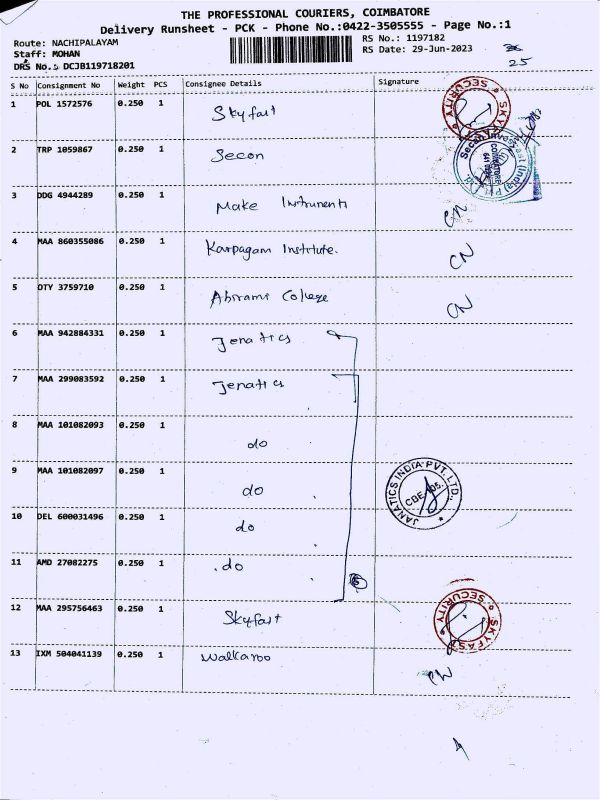 THE PROFESSIONAL COURIERS, COIMBATORE
Delivery Runsheet - PCK - Phone No.:0422-3505555 - Page No.:1
Route: NACHIPALAYAM
RS No.: 1197182
Staff: MOHAN
RS Date: 29-Jun-2023
DRS No.: DCJB119718201
25
S No Consignment No Weight PCS Consignee Details Signature
1 POL 1572576 0.250 1 Skyfast
SKYFAST SECURITY
2 TRP 1059867 0.250 1 Secon
Secon Invest (India) P
COIMBATORE
641
3 DDG 4944289 0.250 1 Make Instruments CN
4 MAA 860355086 0.250 1 Karpagam Institute. CN
5 OTY 3759710 0.250 1 Abirami College CN
6 MAA 942884331 0.250 1 Jenatics
7 MAA 299083592 0.250 1 Jenatics
8 MAA 101082093 0.250 1 do
9 MAA 101082097 0.250 1 do
JANATICS INDIA PVT. LTD.,
CBE
10 DEL 600031496 0.250 1 do
11 AMD 27082275 0.250 1 do
12 MAA 295756463 0.250 1 Skyfast
SKYFAST SECURITY
13 IXM 504041139 0.250 1 Walkaroo CN